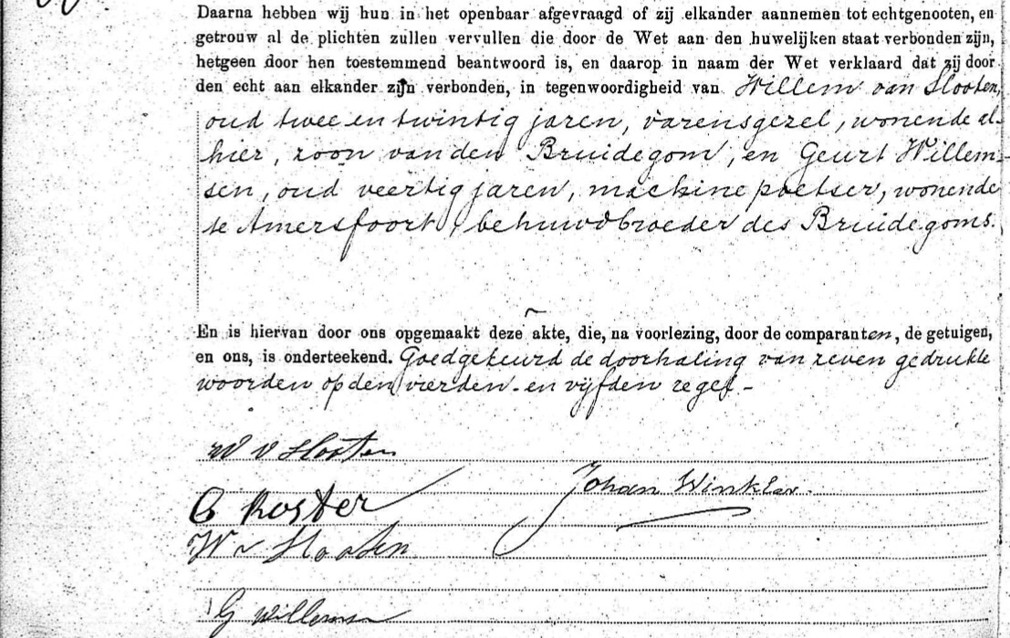 Daarna hebben wij hun in het openbaar afgevraagd of zij elkander aannemen tot echtgenooten, en
getrouw al de plichten zullen vervullen die door de Wet aan den huwelijken staat verbonden zijn,
hetgeen door hen toestemmend beantwoord is, en daarop in naam der Wet verklaard dat zij door
den echt aan elkander zijn verbonden, in tegenwoordigheid van Willem van Slooten,
oud twee en twintig jaren, varensgezel, wonende al-
hier, zoon van den Bruidegom, en Geurt Willem-
sen, oud veertig jaren, machinepoetser, wonende
te Amersfoort, behuwdbroeder des Bruidegoms.
En is hiervan door ons opgemaakt deze akte, die, na voorlezing, door de comparanten, de getuigen,
en ons, is onderteekend. Goedgekeurd de doorhaling van zeven gedrukte
woorden op den vierden en vijfden regel -
W v Slooten
G Koster
Johan Winkler.
W v Slooten
G Willemsen